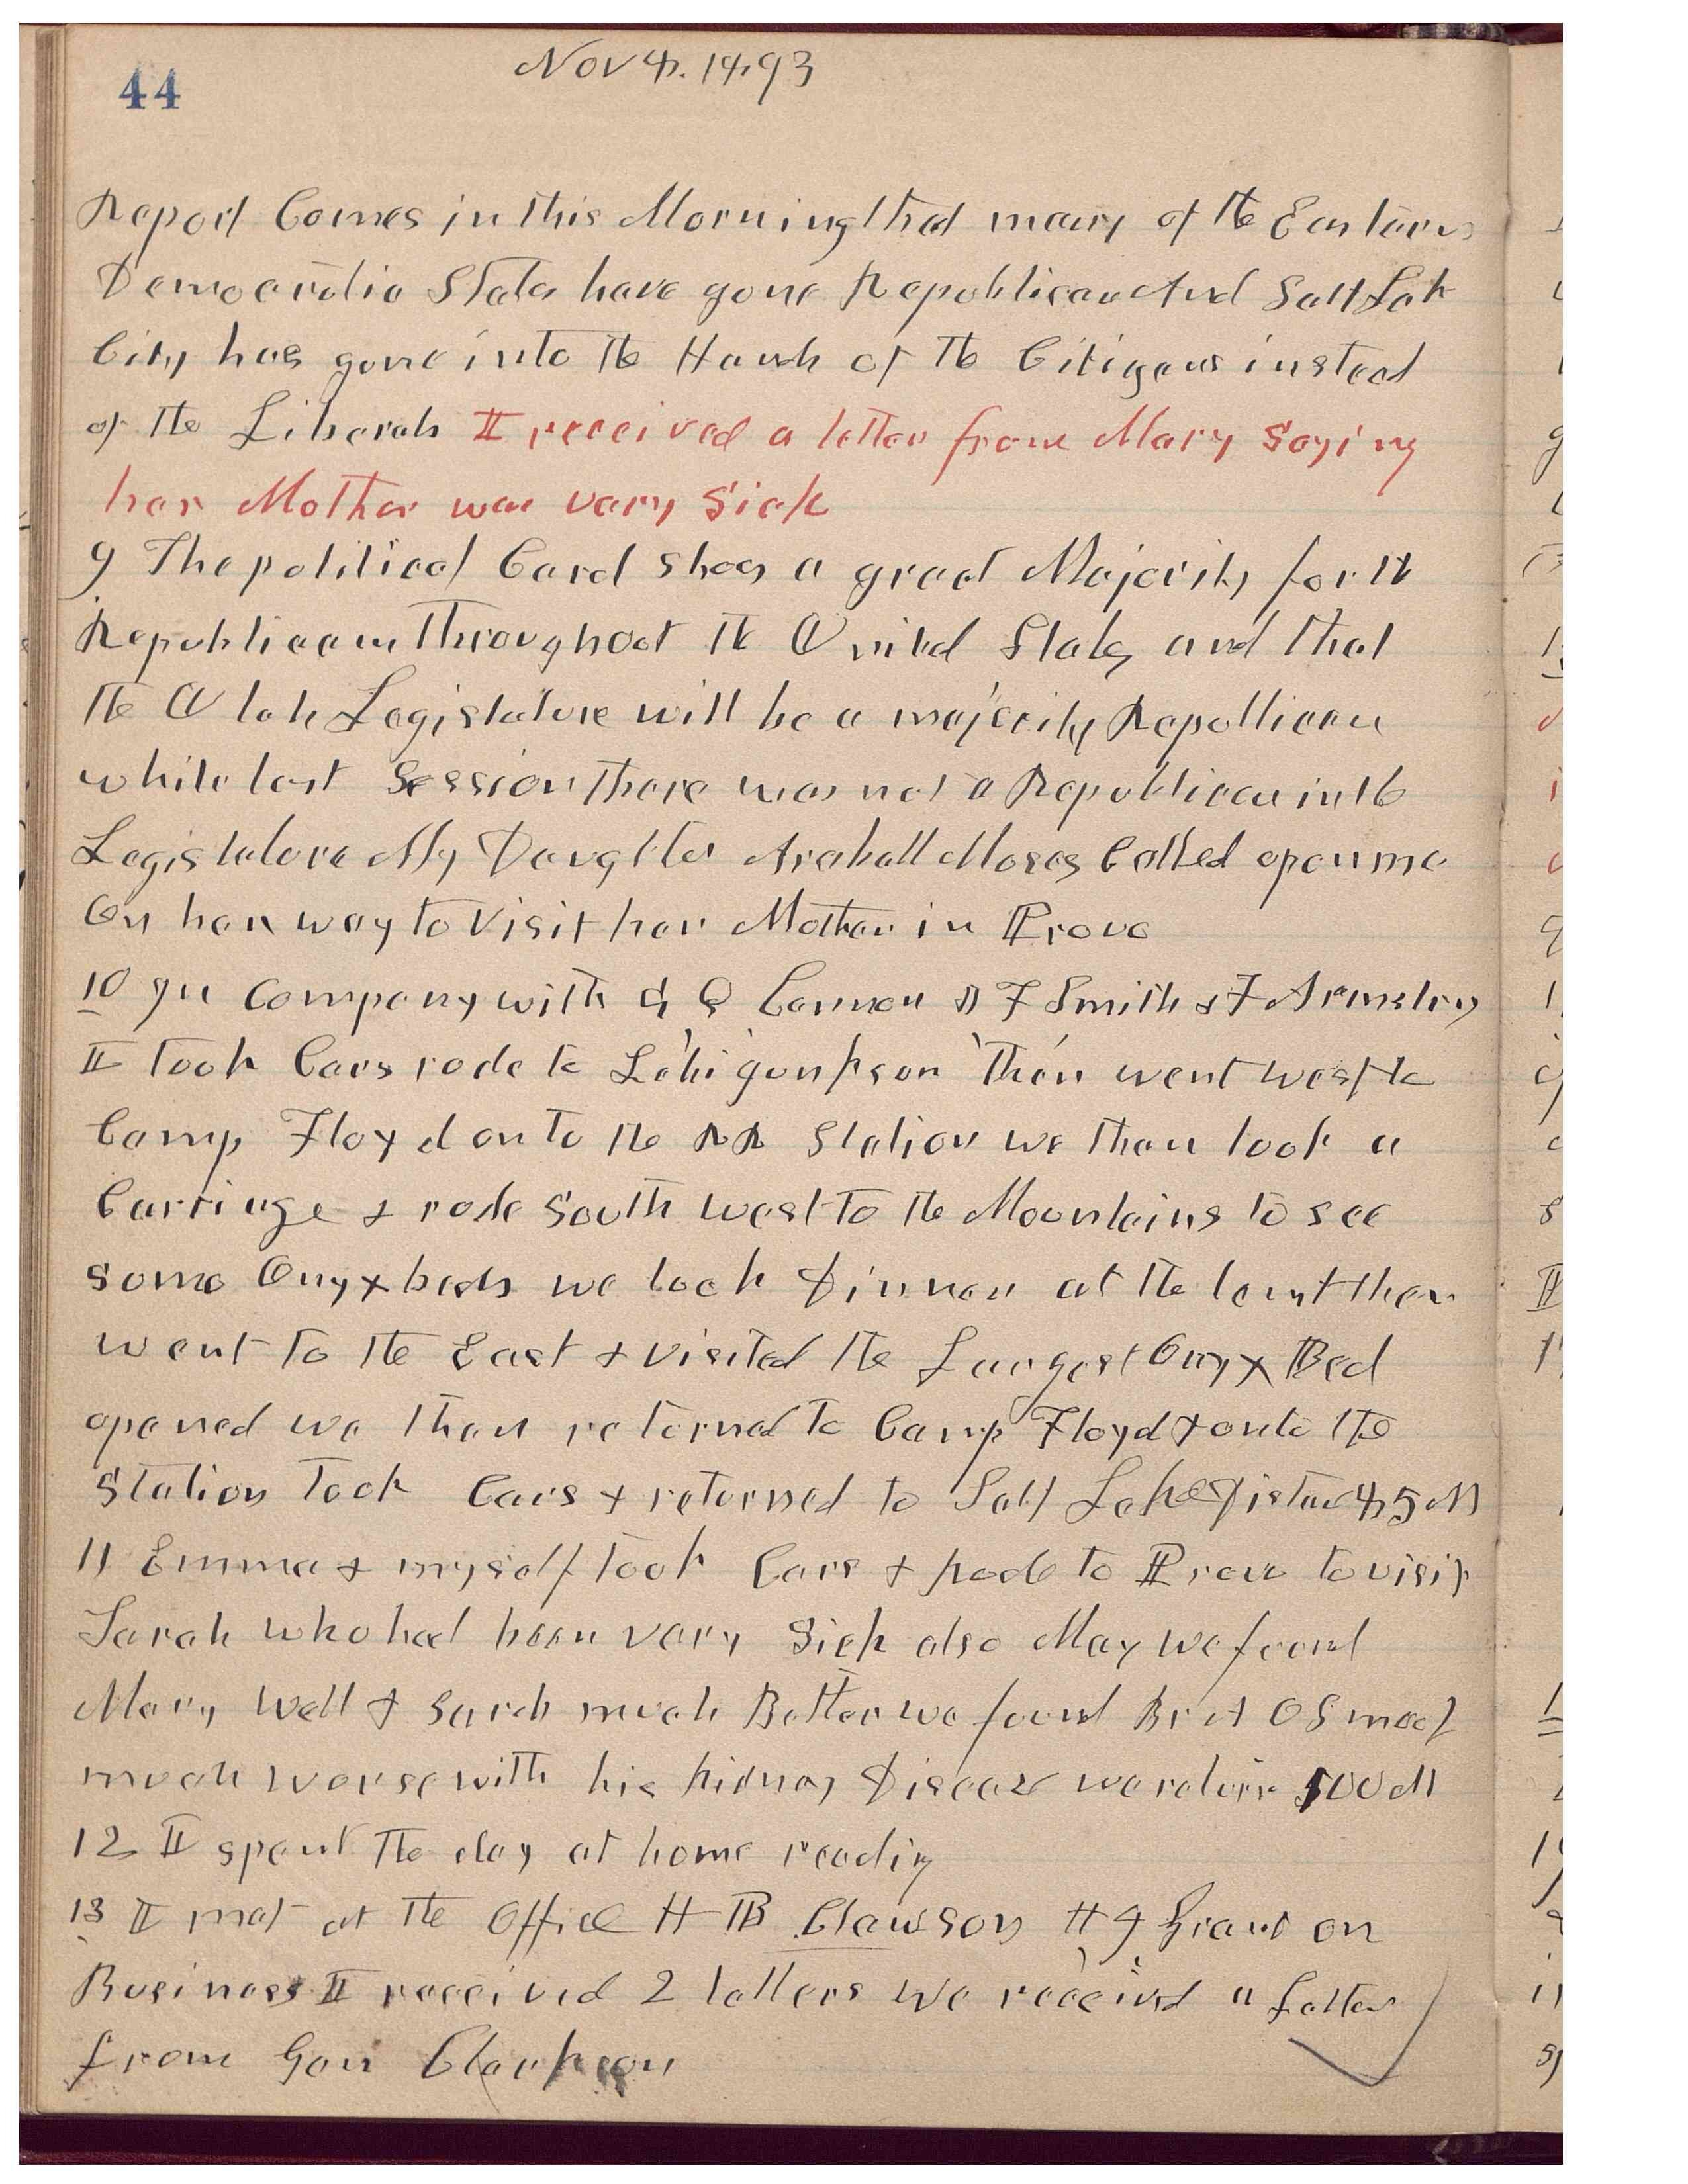 44
Nov 4. 1493
Report Comes in this Morning that many of the Eastern
Democratic States have gone Republican And Salt Lak
City has gone into the Hands of the Citizens instead
of the Liberals I received a letter from Mary Saying
her Mother was very Sick
9 The political Card Shos a great Majority for the
Republican throughout the United States and that
the Utah Legislature will be a majority Repollican
while last Session there was not a Republican in the
Legislatore My Daughter Arabell Moses Called opon me
On her way to Visit her Mother in Provo
10 In Company with G Q Cannon & J F Smith & F Armstrong
I took Cars rode to Lehi gunkson then went west to
Camp Floyd on to the RR Station we then took a
Carriage & rode South west to the Mountains to see
some Onyx beds we took Dinner at the tent then
went to the East & visited the Largest Onyx Bed
opened we then retorned to Camp Floyd & onto the
Station Took Cars & retorned to Salt Lake Distan 45 M
11 Emma & myself took Cars & rode to Provo to visit
Sarah who had been very Sick also May we found
Mary Well & Sarah much Better we found Br A O Smoot
much worse with his kidney Disease 100 M
12 I spent the day at home reading
13 I met at the Office H B Clawson H J Grant on
Business I received 2 letters we received a Letter
from Gen Clarkson